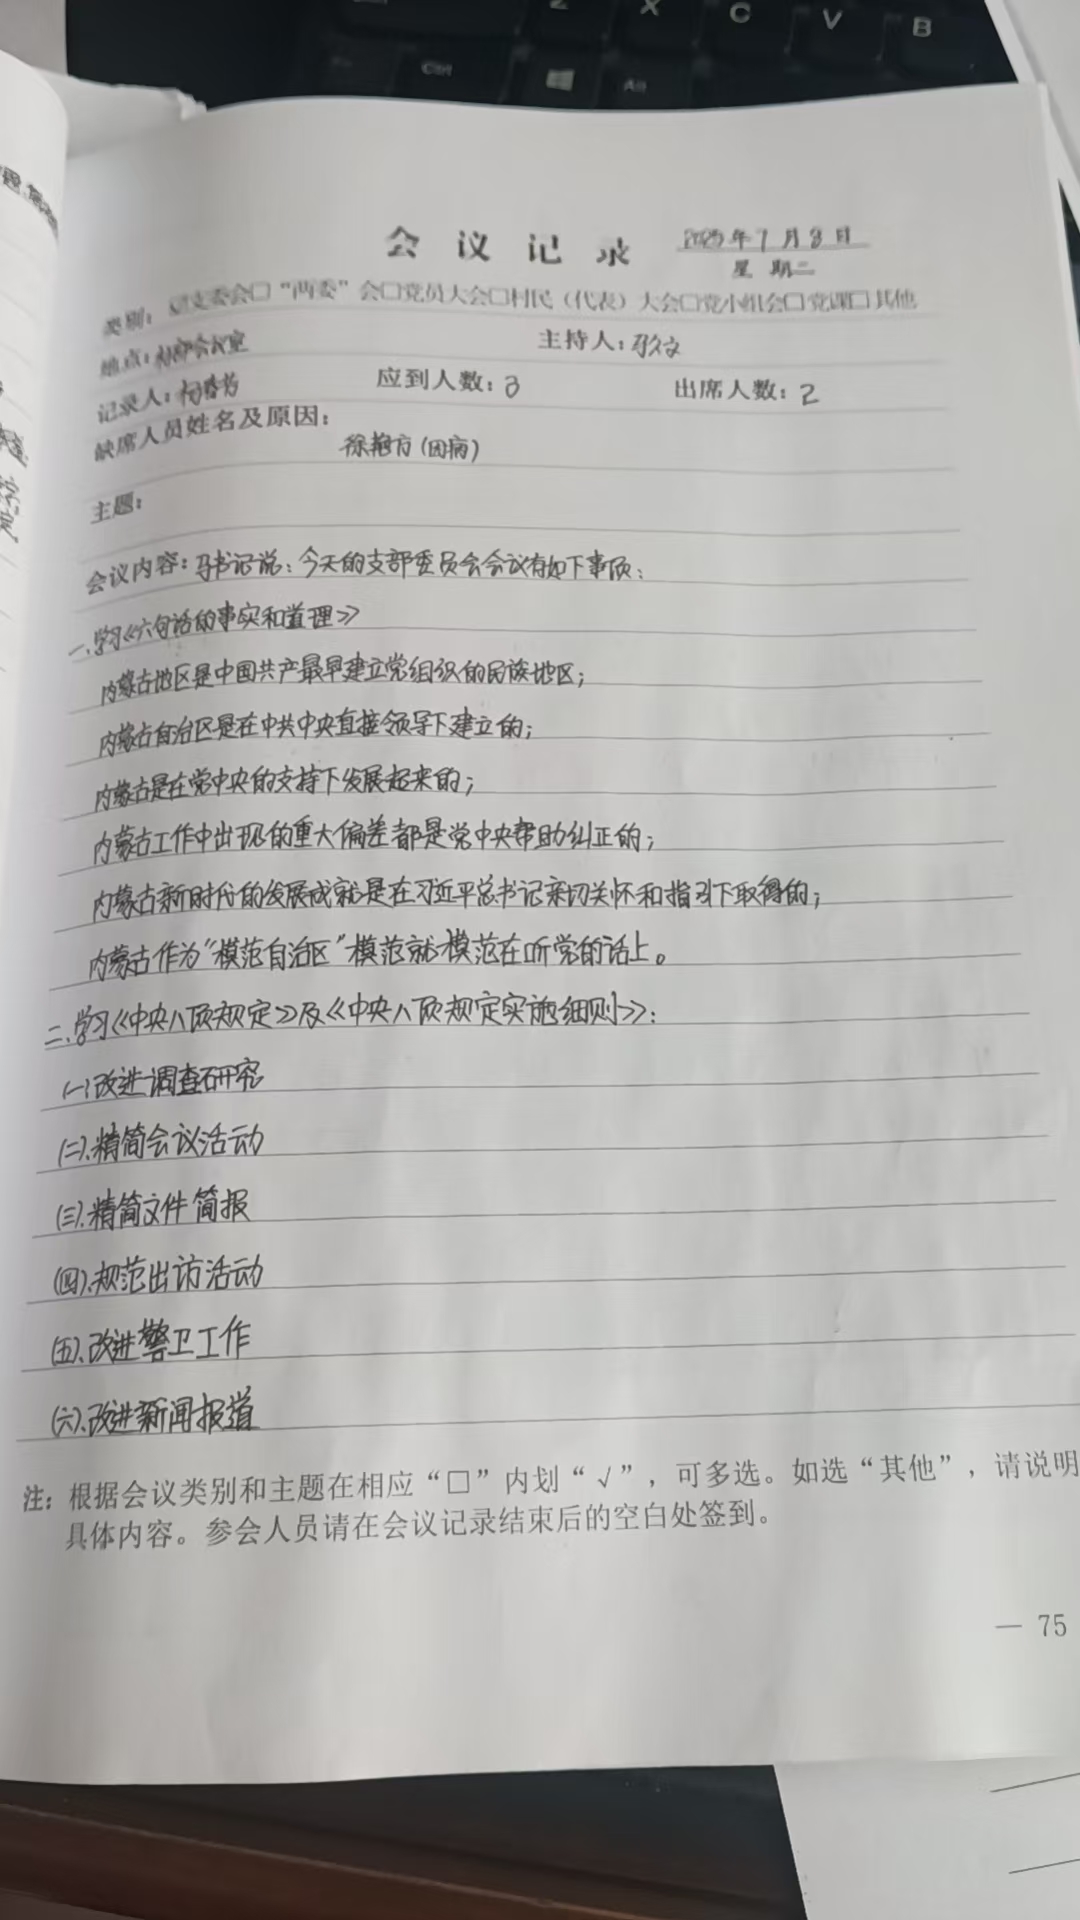 Z X C V B
Ctrl Alt
会议记录
2025年7月8日
星期二
类别：☑支委会□“两委”会□党员大会□村民（代表）大会□党小组会□党课□其他
地点：村部会议室 主持人：马文
记录人：杨春芳 应到人数：3 出席人数：2
缺席人员姓名及原因：
徐艳方(因病)
主题：
会议内容：马书记说：今天的支部委员会会议有如下事项：
一、学习《六句话的事实和道理》
内蒙古地区是中国共产最早建立党组织的民族地区；
内蒙古自治区是在中共中央直接领导下建立的；
内蒙古是在党中央的支持下发展起来的；
内蒙古工作中出现的重大偏差都是党中央帮助纠正的；
内蒙古新时代的发展成就是在习近平总书记亲切关怀和指引下取得的；
内蒙古作为“模范自治区”模范就模范在听党的话上。
二、学习《中央八项规定》及《中央八项规定实施细则》：
(一)、改进调查研究
(二)、精简会议活动
(三)、精简文件简报
(四)、规范出访活动
(五)、改进警卫工作
(六)、改进新闻报道
注：根据会议类别和主题在相应“□”内划“√”，可多选。如选“其他”，请说明
具体内容。参会人员请在会议记录结束后的空白处签到。
— 75